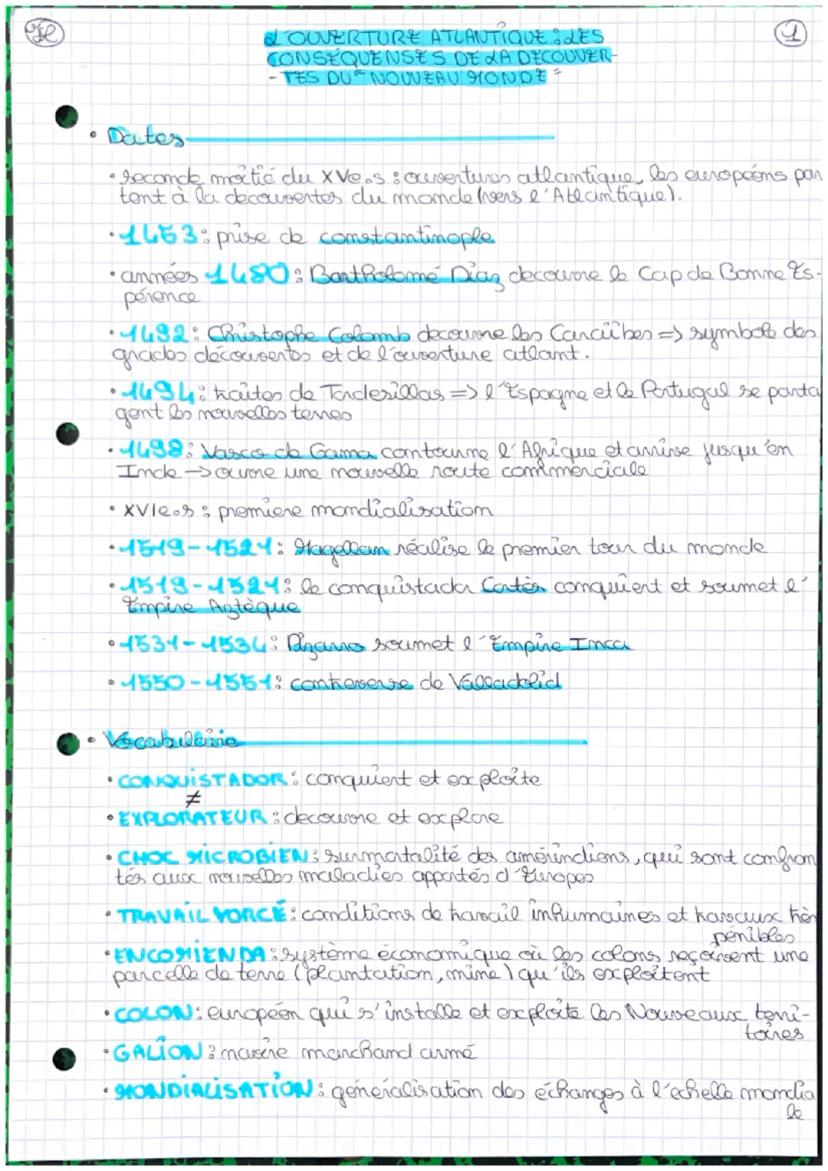 1
L'OUVERTURE ATLANTIQUE : LES
CONSÉQUENSES DE LA DECOUVER-
-TES DU "NOUVEAU MONDE"
• Dates
• seconde moitié du XVe.s : ouvertures atlantique, les européens par
tent à la decouvertes du monde (vers l'Atlantique).
• 1453 : prise de constantinople
• années 1480 : Bartholomé Diaz decouvre le Cap de Bonne Es-
pérence
• 1492 : Christophe Colomb decouvre les Caraïbes => symbole des
grades découvertes et de l'ouverture atlant.
• 1494 : traites de Tordesillas => l'Espagne et le Portugal se parta
gent les nouvelles terres
• 1498 : Vasco de Gama contourne l'Afrique et arrive jusqu'en
Inde → ouvre une nouvelle route commerciale
• XVIe.s : premiere mondialisation
• 1519-1521 : Magellan réalise le premier tour du monde
• 1519-1521 : le conquistador Cortès conquient et soumet l'
Empire Aztèque
• 1531-1534 : Pizarro soumet l'Empire Inca
• 1550-1551 : controverse de Valladolid
• Vocabulaire
• CONQUISTADOR : conquient et exploite
≠
• EXPLORATEUR : decouvre et explore
• CHOC MICROBIEN : surmortalité des amérindiens, qui sont confron
tés aux nouvelles maladies apportés d'Europes
• TRAVAIL FORCÉ : conditions de travail inhumaines et travaux très
pénibles
• ENCOMIENDA : système économique où les colons reçoivent une
parcelle de terre (plantation, mine) qu'ils exploitent
• COLON : européen qui s'installe et exploite les Nouveaux terri-
toires
• GALION : navire marchand armé
• MONDIALISATION : généralisation des échanges à l'echelle mondia
le